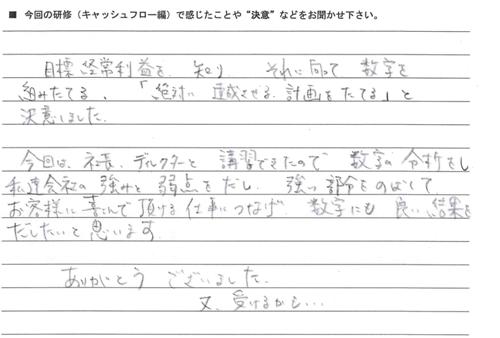 ■ 今回の研修（キャッシュフロー編）で感じたことや“決意”などをお聞かせ下さい。
目標経常利益を 知り それに向って 数字を
組みたてる、「絶対に 達成させる 計画をたてる」と
決意しました.
今回は、社長、ディレクターと 講習できたので 数字の 分析をし
私達会社の 強みと 弱点をだし、強い 部分をのばして
お客様に 喜んで 頂ける 仕事につなげ、数字にも 良い 結果を
だしたいと 思います
ありがとう ございました.
又、受けるかも…